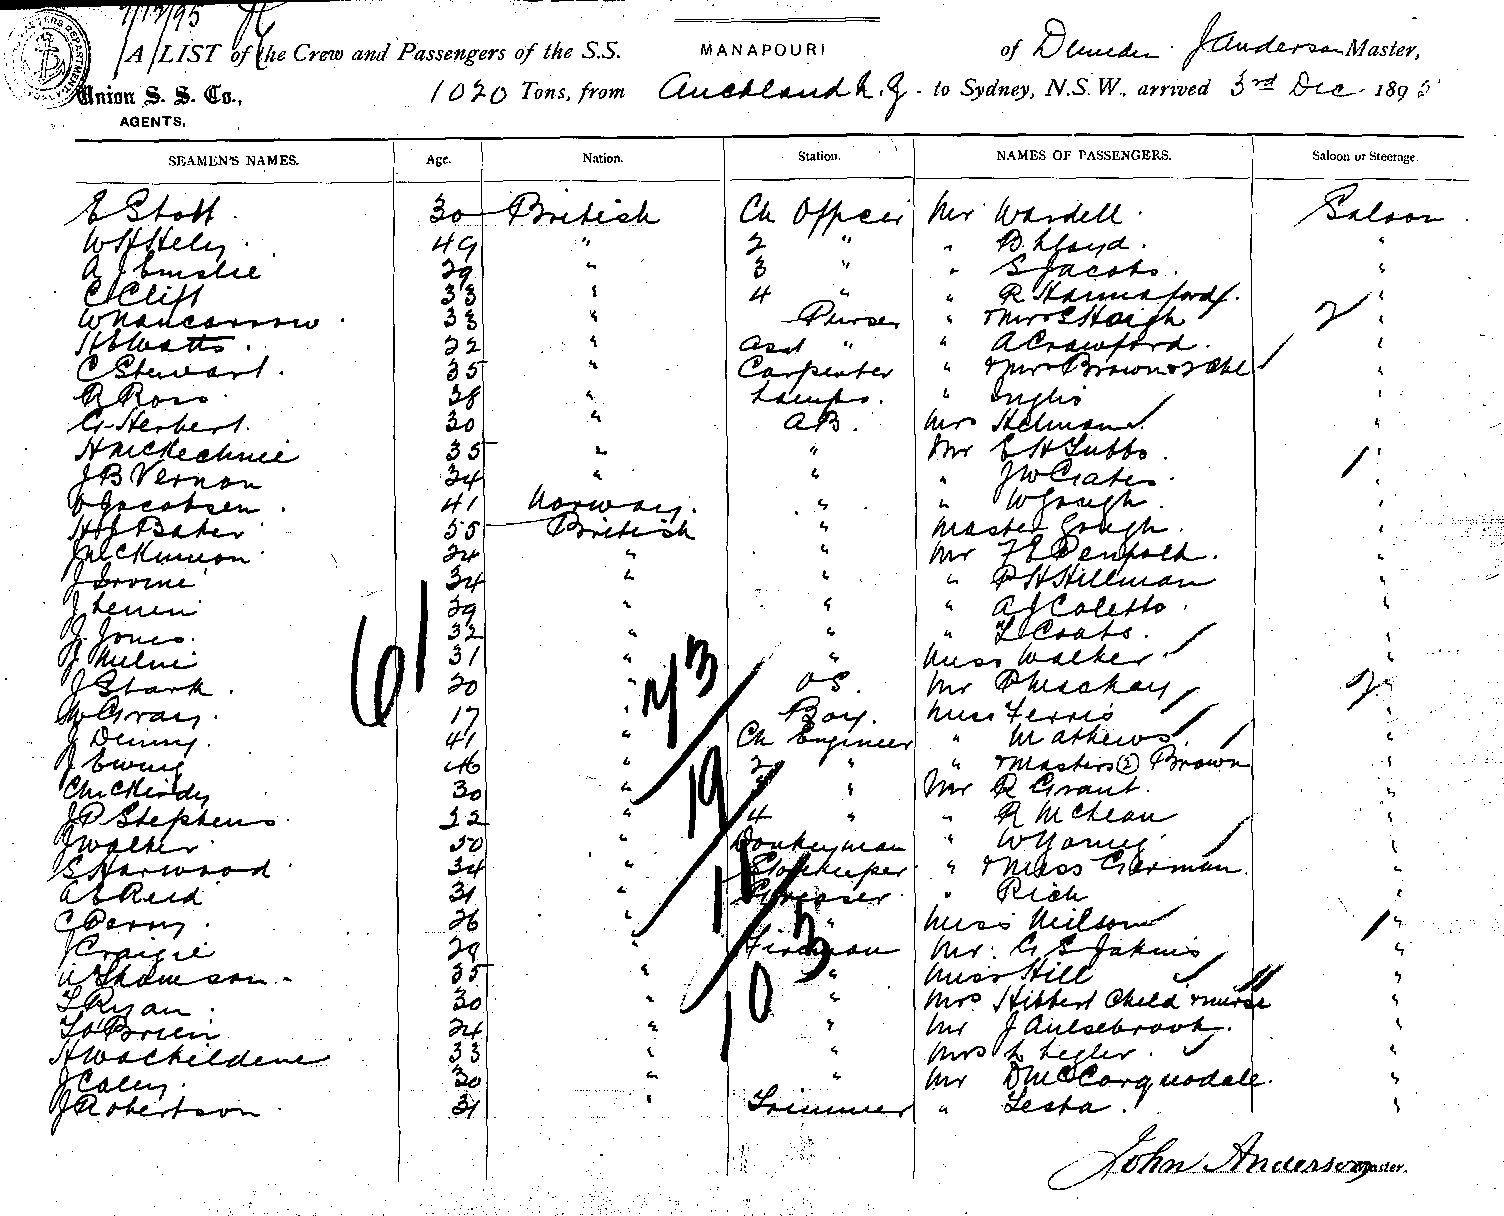 7/12/95
A LIST of the Crew and Passengers of the S.S. MANAPOURI of Dunedin. J Anderson Master,
Union S. S. Co., AGENTS, 1020 Tons, from Auckland N.Z. to Sydney, N.S.W., arrived 3rd Dec 1895
SEAMEN'S NAMES. Age. Nation. Station. NAMES OF PASSENGERS. Saloon or Steerage.
E Stott 30 British Ch Officer Mr Wardell. Saloon
W H Hely 49 " 2 " " B Lloyd. "
A J Emslie 29 " 3 " " S Jacobs. "
C Clift 33 " 4 " " R Hannaford. "
W Nancarrow 33 " Purser " & Mrs E Haigh 2 "
H E Watts. 22 " Asst " " A Crawford. "
C Stewart. 35 " Carpenter " & Mrs Brown & Chl "
R Ross 38 " Lamps. " Inglis "
G Herbert. 30 " A.B. Mrs Helman "
H McKechnie 35 " " Mr E H Tubbs. "
J B Vernon 34 " " " J W Crates. 1 "
Jacobsen. 41 Norway. " " W Gough. "
H J Baker 55 British " Master Gough. "
J McKinnon 24 " " Mr F E Penfold. "
J Irvine 34 " " " P H Hillman "
J 29 " " " A J Coletto. "
J. Jones. 32 " " " T Coats. "
J Milne 31 " " Miss Walker "
J Stark. 20 " O.S. Mr P Mackay 2 "
W Gray. 17 " Boy. Miss Ferris "
J Denny. 41 " Ch Engineer " Mathews. "
J Ewing 46 " 2 " " & Masters (2) Brown "
C McKirdy 30 " 3 " Mr R Grant. "
J P Stephens. 32 " 4 " " R McLean "
J Walker 50 " Donkeyman " W Young "
E Harwood 34 " Storekeeper " & Miss Gorman. "
A E Reid 31 " Greaser " Rich "
C Perry. 26 " " Miss Neilson 1 "
J Craigie 29 " Fireman Mr. G S Jakins "
W Thomson. 35 " " Miss Hill "
T Ryan. 30 " " Mrs Hibbert Child & nurse "
T O'Brien 24 " " Mr J Aulsebrook. "
H 33 " " Mrs L Legler. "
J Caley. 30 " " Mr D McCorquodale. "
J Robertson 31 " Trimmer " Testa. "
61
43
19
11
3
10
John Anderson Master.